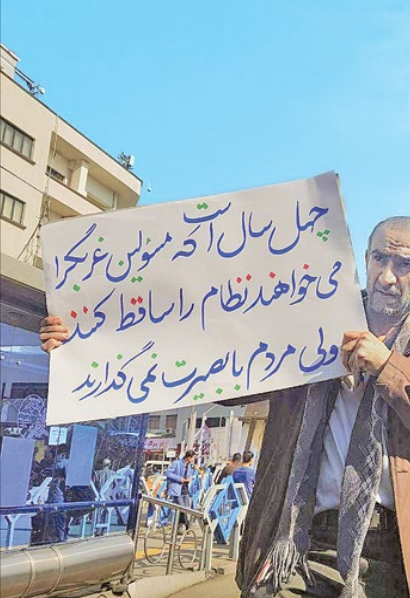 چهل سال است که مسئولین غربگرا
می‌خواهند نظام را ساقط کنند
ولی مردم با بصیرت نمی‌گذارند